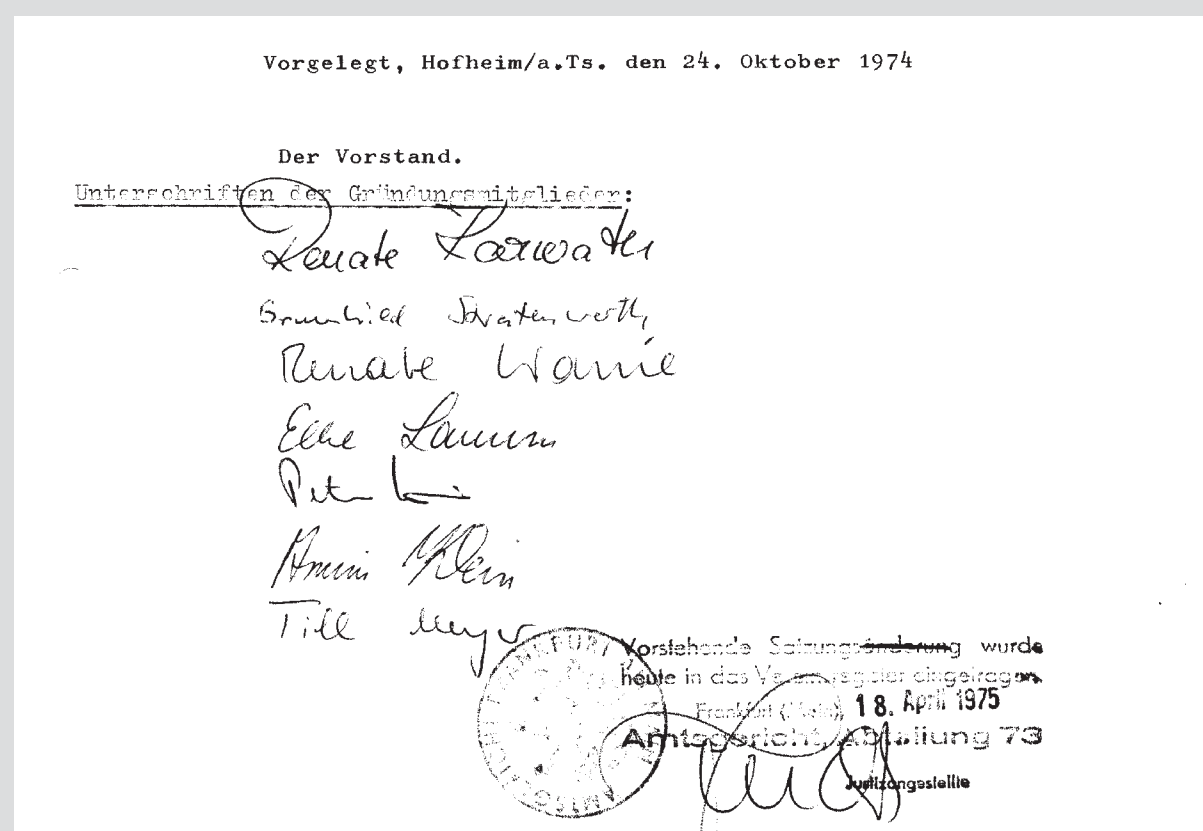 Vorgelegt, Hofheim/a.Ts. den 24. Oktober 1974
Der Vorstand.
Unterschriften der Gründungsmitglieder:
Renate
Renate Wanie
Elke
Peter
Klein
Till Meyer
Vorstehende Satzungsänderung wurde
heute in das Vereinsregister eingetragen.
Frankfurt (Main), 18. April 1975
Amtsgericht, Abteilung 73
Justizangestellte
AMTSGERICHT FRANKFURT